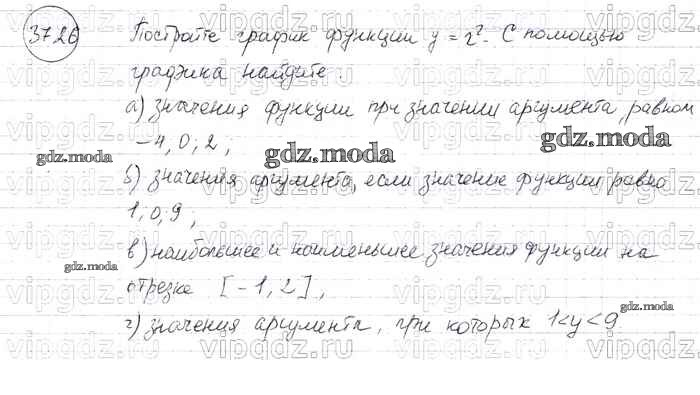 372б Постройте график функции y = x². С помощью
графика найдите:
а) значения функции при значении аргумента, равном
-4, 0, 2;
б) значения аргумента, если значение функции равно
1, 0, 9;
в) наибольшее и наименьшее значения функции на
отрезке [-1, 2];
г) значения аргумента, при которых 1<y<9
gdz.moda
gdz.moda
gdz.moda
gdz.moda
gdz.moda
vipgdz.ru